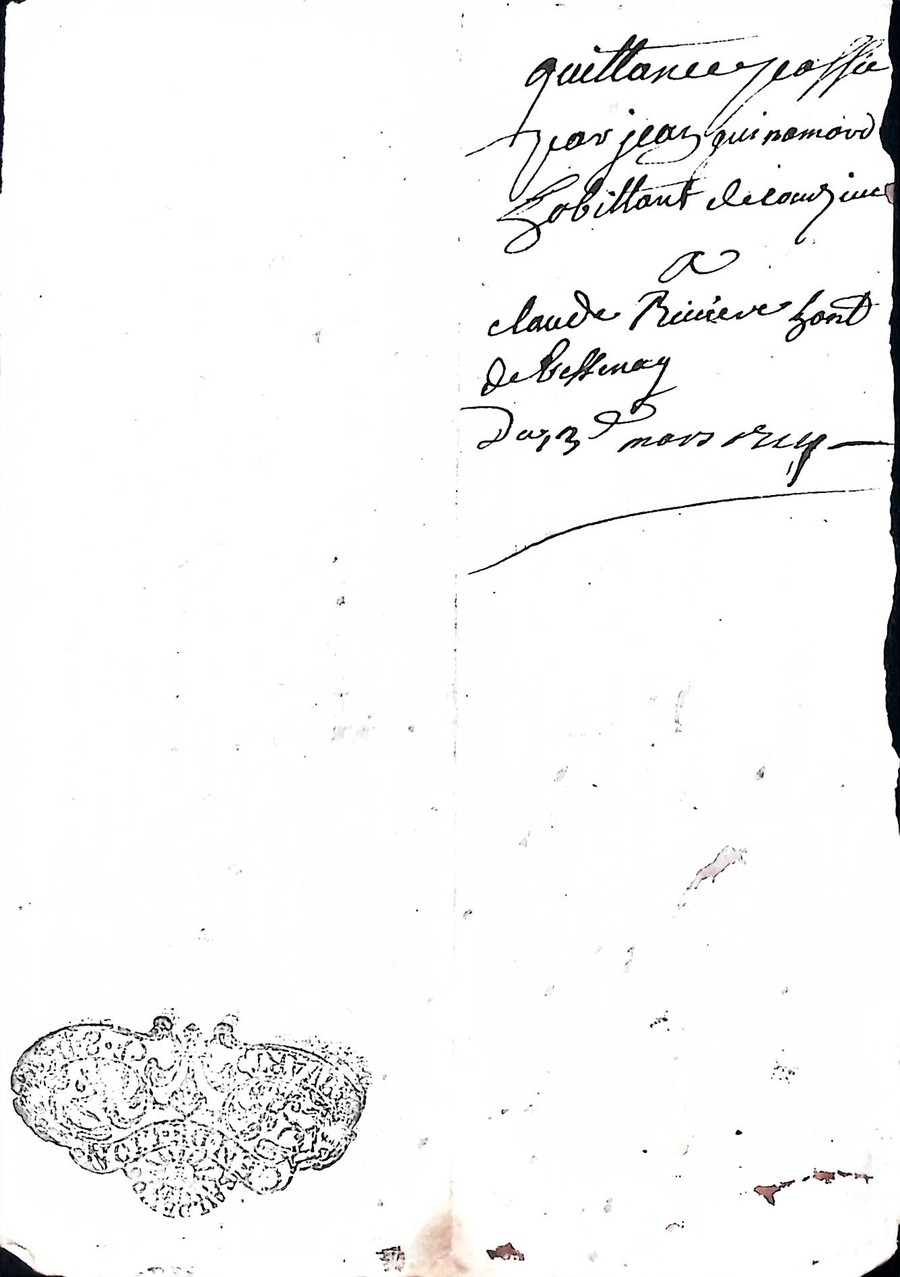 quittance passée
par jean guinamard
habittant de courzieu
a
claude Riviere habt
de bessenay
Du 13e mars